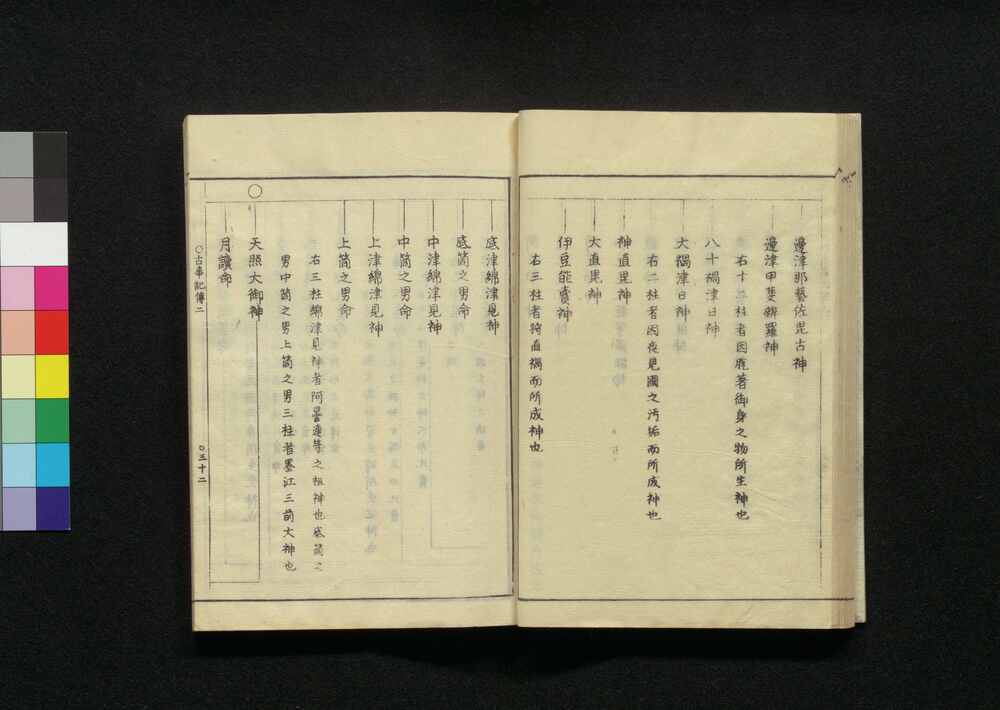 邊津那藝佐毘古神
邊津甲斐辨羅神
右十二柱者因脱著御身之物所生神也
八十禍津日神
大禍津日神
右二柱者因穢國之汚垢而所成神也
神直毘神
大直毘神
伊豆能賣神
右三柱者將直禍而所成神也
底津綿津見神
底筒之男命
中津綿津見神
中筒之男命
上津綿津見神
上筒之男命
右三柱綿津見神者阿曇連等之祖神也底筒之
男中筒之男上筒之男三柱者墨江三前大神也
天照大御神
月讀命
○古事記傳二
○三十二